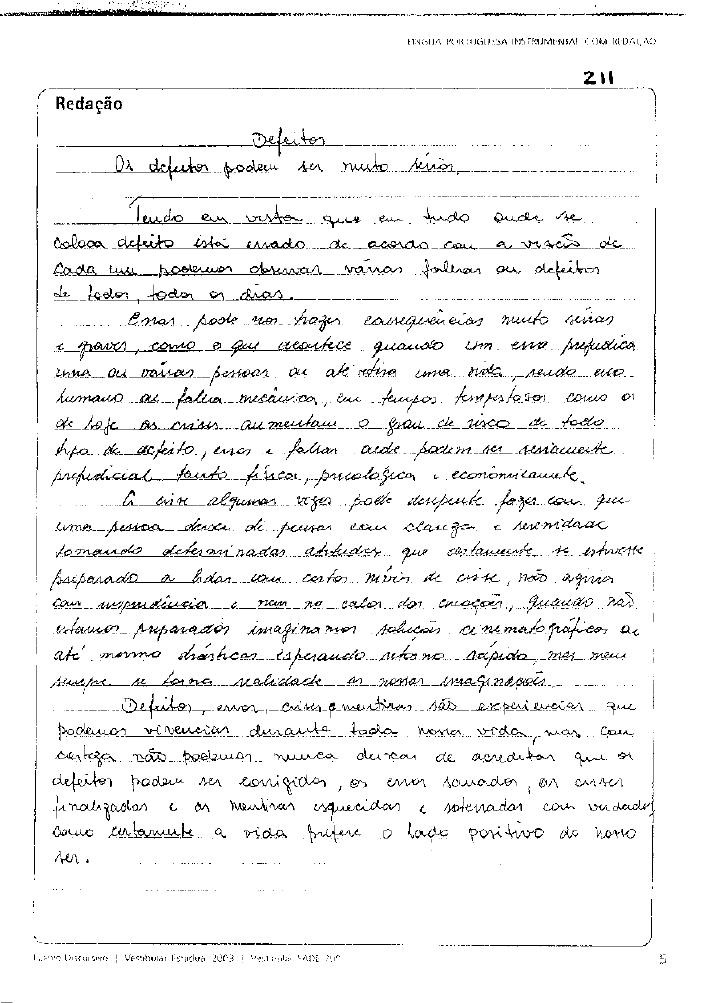 LÍNGUA PORTUGUESA INSTRUMENTAL COM REDAÇÃO
211
Redação
Defeitos
Os defeitos podem ser muito sérios.
Tendo em vista que em tudo onde se
coloca defeito está errado de acordo com a visão de
cada um podemos observar várias falhas ou defeitos
de todos, todos os dias.
Erros pode nos trazer consequências muito sérias
e graves, como o que acontece quando um erro prejudica
uma ou várias pessoas ou até retira uma vida, sendo erro
humano ou falha mecânica, em tempos tempestosos como os
de hoje as crises aumentam o grau de risco de todo
tipo de defeito, erros e falhas onde podem ser seriamente
prejudicial tanto física, psicologica e econômicamente.
A crise algumas vezes pode derepente fazer com que
uma pessoa deixe de pensar com clareza e serenidade
tomando determinadas atitudes que certamente se estivesse
preparado a lidar com certos níveis de crise, não agiria
com imprudência e nem no calor das emoções, quando não
estamos preparados imaginamos soluções cinematográficas ou
até mesmo drásticas esperando retorno rápido mas nem
sempre se torna realidade as nossas imaginações.
Defeitos, erros, crises e mentiras são experiencias que
podemos vivenciar durante toda nossa vida, mas com
certeza não podemos nunca deixar de acreditar que os
defeitos podem ser corrigidos, os erros sanados, as crises
finalizadas e as mentiras esquecidas e soterradas com verdades
como certamente a vida prefere o lado positivo do nosso
ser.
Exame Discursivo | Vestibular Estadual 2009 |
5